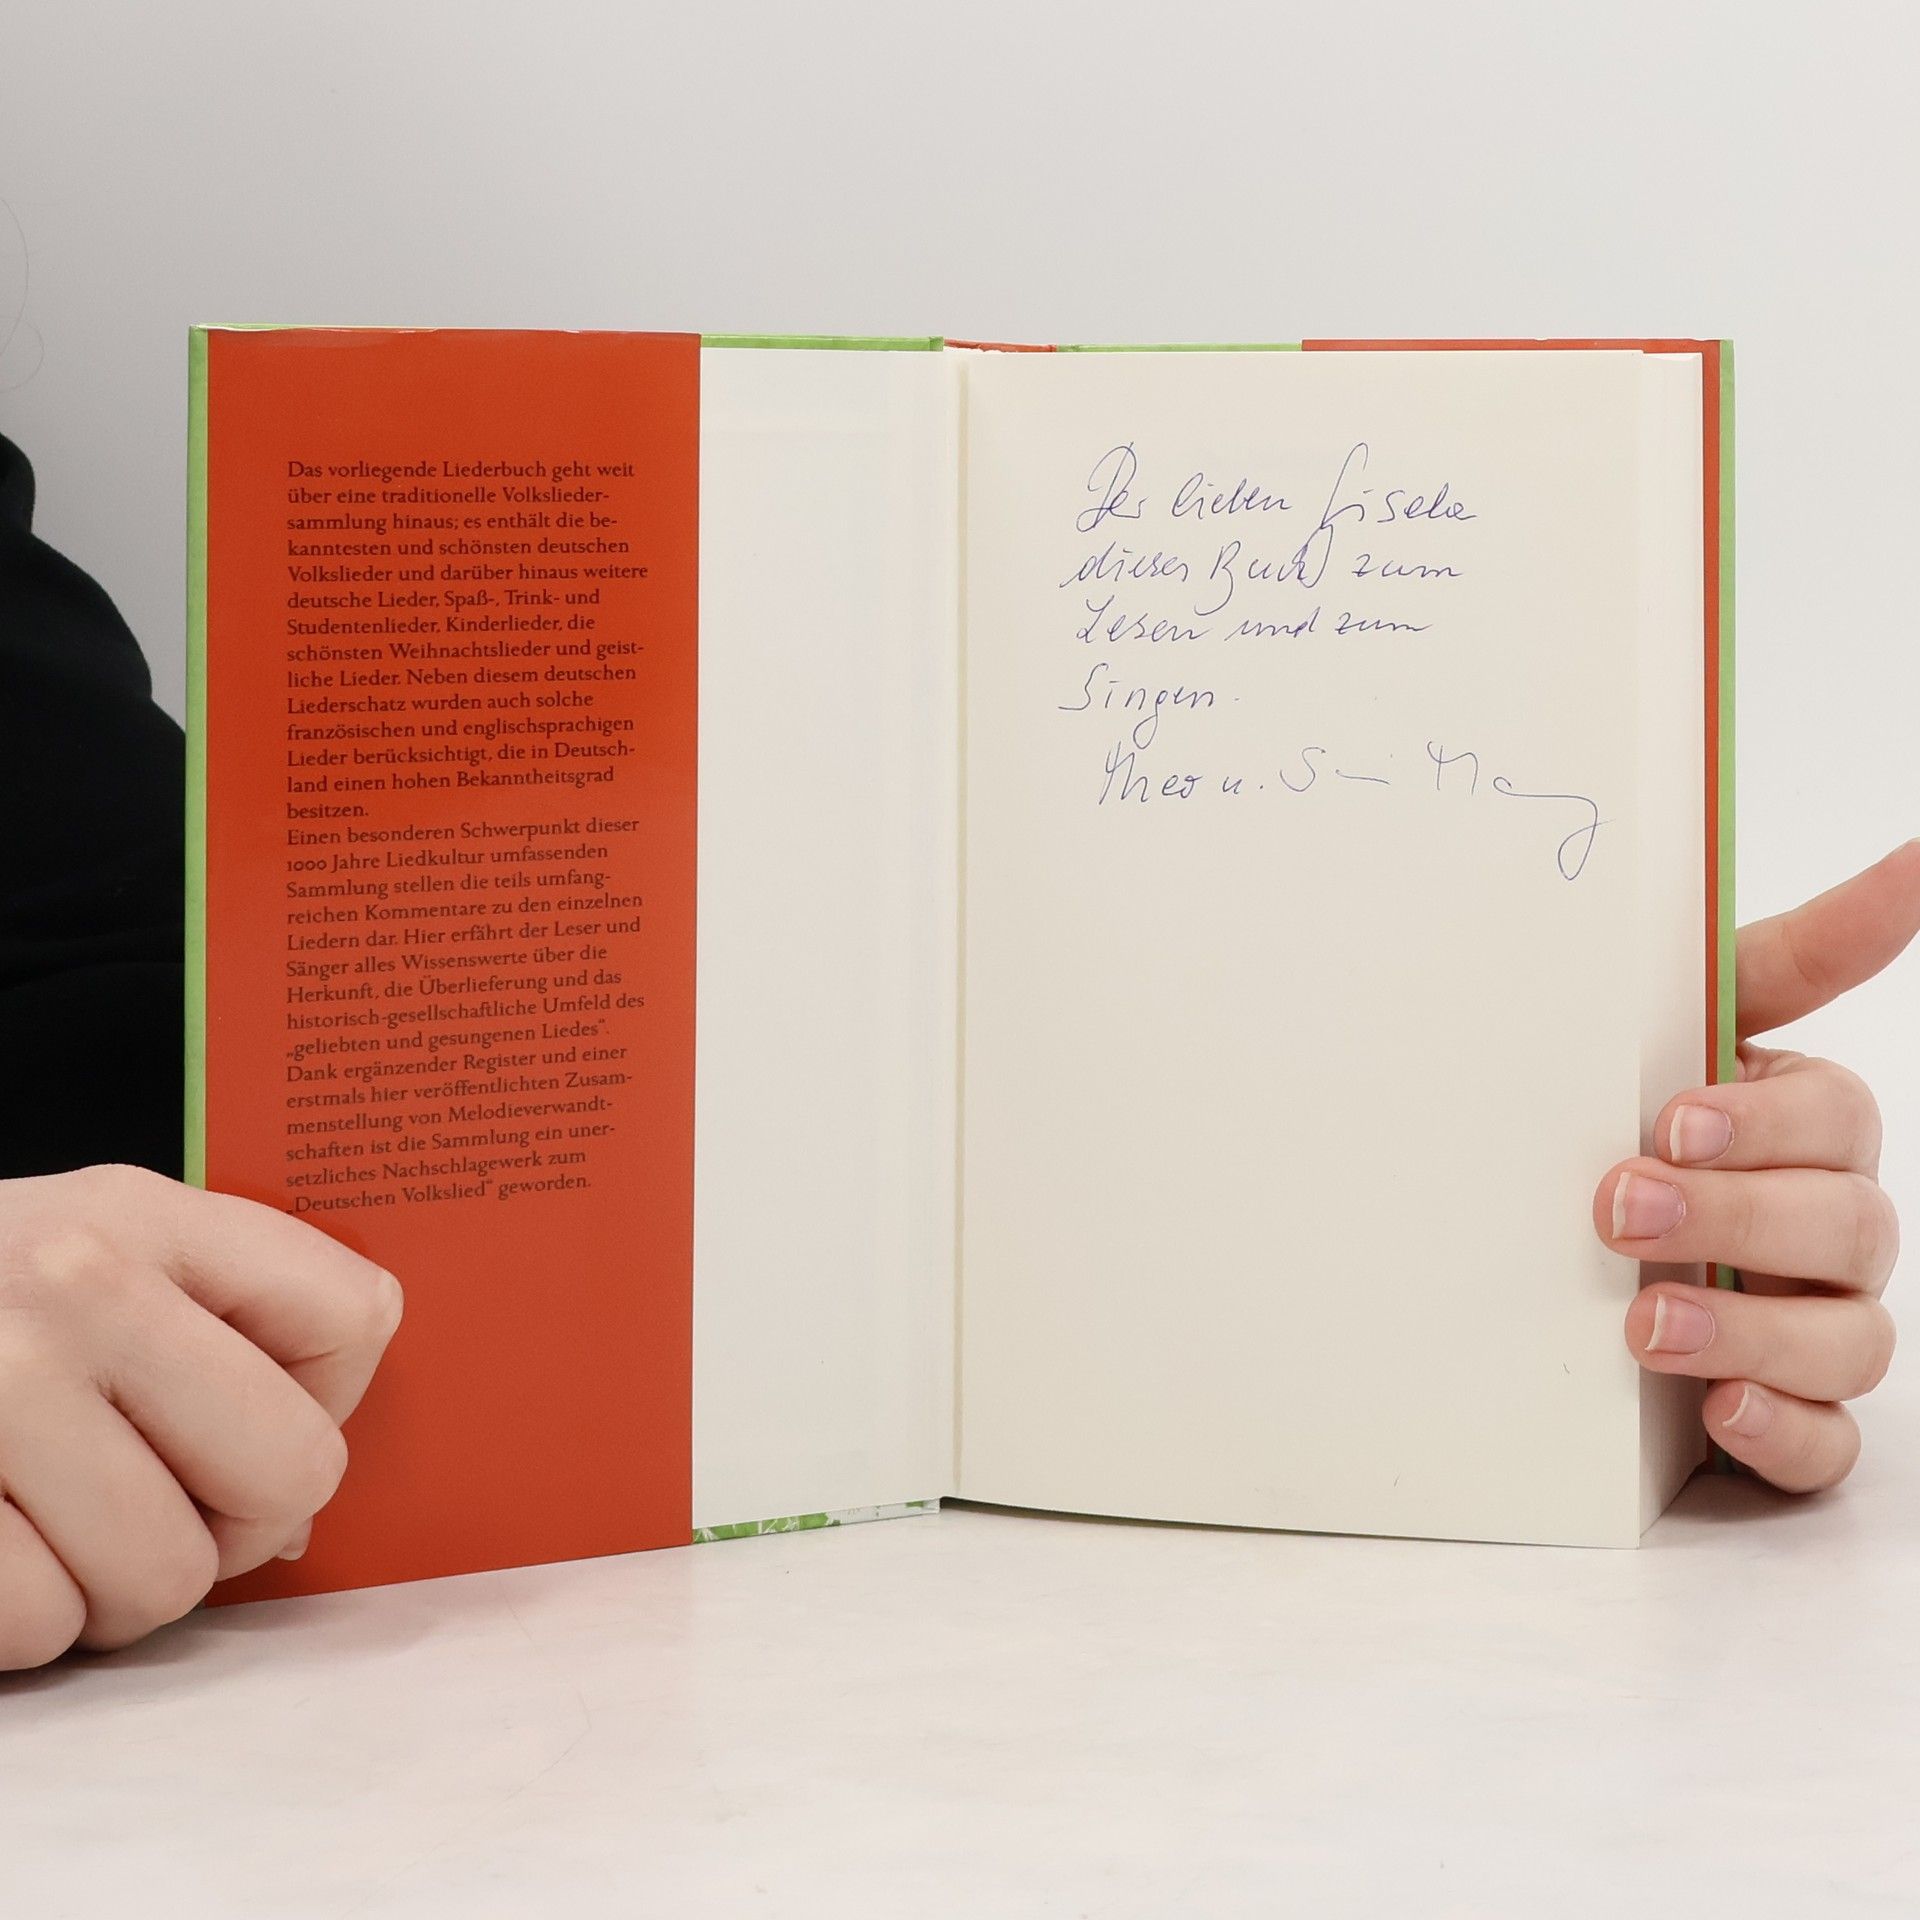 Das vorliegende Liederbuch geht weit
über eine traditionelle Volkslieder-
sammlung hinaus; es enthält die be-
kanntesten und schönsten deutschen
Volkslieder und darüber hinaus weitere
deutsche Lieder, Spaß-, Trink- und
Studentenlieder, Kinderlieder, die
schönsten Weihnachtslieder und geist-
liche Lieder. Neben diesem deutschen
Liederschatz wurden auch solche
französischen und englischsprachigen
Lieder berücksichtigt, die in Deutsch-
land einen hohen Bekanntheitsgrad
besitzen.
Einen besonderen Schwerpunkt dieser
1000 Jahre Liedkultur umfassenden
Sammlung stellen die teils umfang-
reichen Kommentare zu den einzelnen
Liedern dar. Hier erfährt der Leser und
Sänger alles Wissenswerte über die
Herkunft, die Überlieferung und das
historisch-gesellschaftliche Umfeld des
„geliebten und gesungenen Liedes“.
Dank ergänzender Register und einer
erstmals hier veröffentlichten Zusam-
menstellung von Melodieverwandt-
schaften ist die Sammlung ein uner-
setzliches Nachschlagewerk zum
„Deutschen Volkslied“ geworden.
Der lieben Gisela
dieses Buch zum
Lesen und zum
Singen.
Theo u.